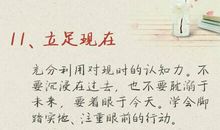 11、立足现在
充分利用对现时的认知力。不
要沉浸在过去，也不要耽溺于
未来，要着眼于今天。学会脚
踏实地、注重眼前的行动。